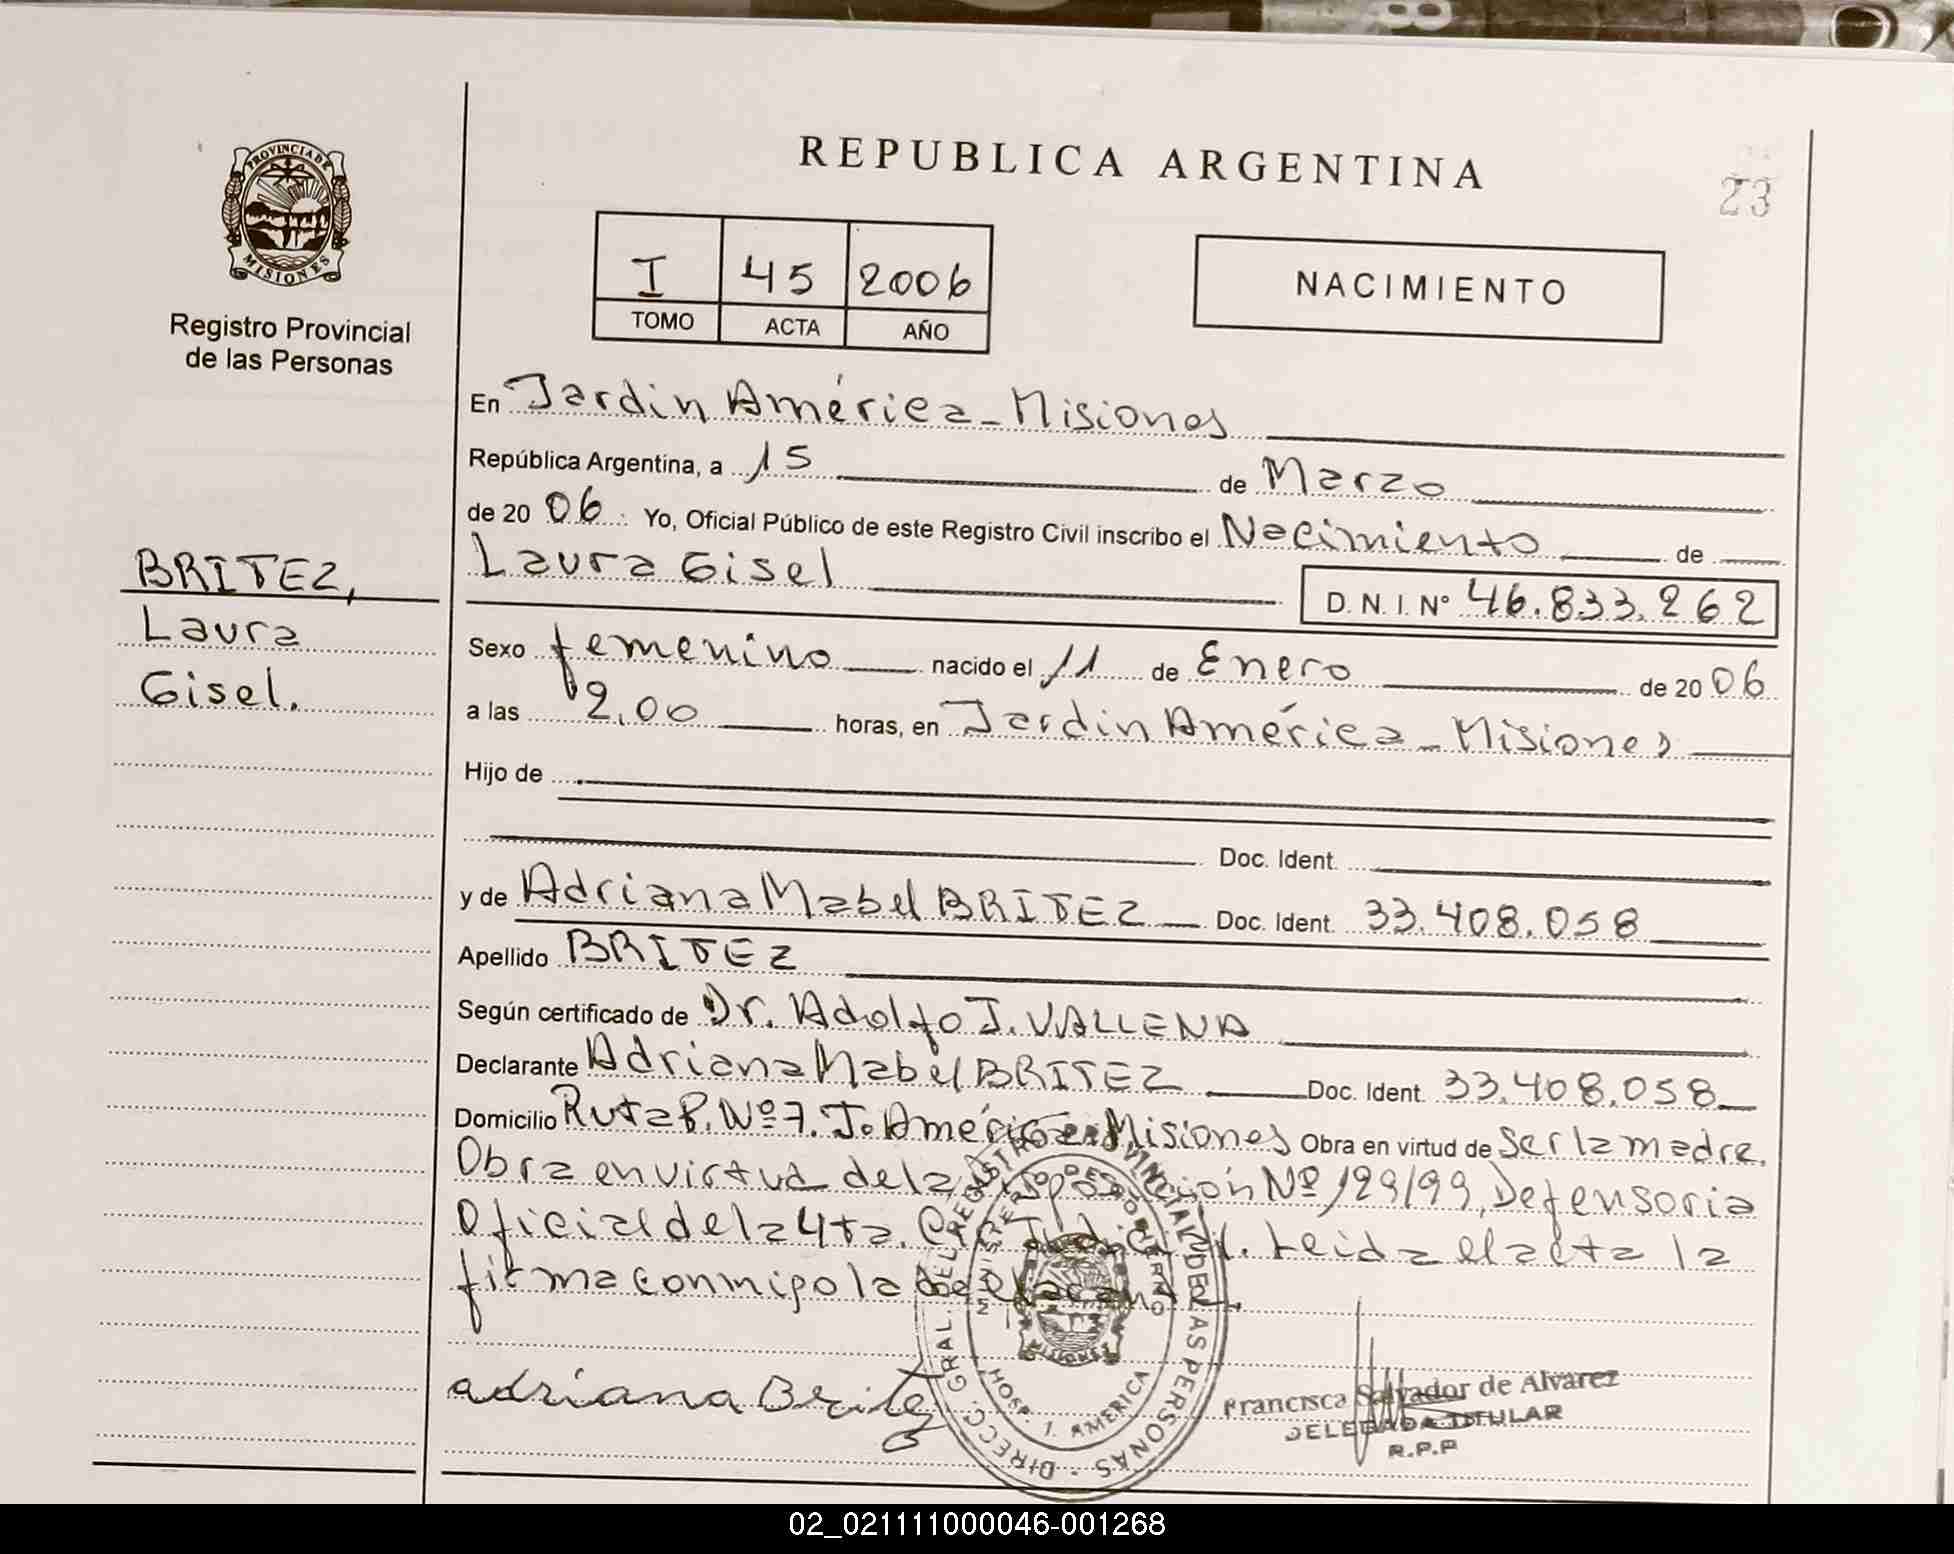 REPUBLICA ARGENTINA
23
PROVINCIA DE
MISIONES
Registro Provincial
de las Personas
I 45 2006
TOMO ACTA AÑO
NACIMIENTO
BRITEZ,
Laura
Gisel.
En Jardin América - Misiones
República Argentina, a 15 de Marzo
de 20 06 Yo, Oficial Público de este Registro Civil inscribo el Nacimiento de
Laura Gisel
D. N. I. Nº 46.833.262
Sexo femenino nacido el 11 de Enero de 20 06
a las 2,00 horas, en Jardin América - Misiones
Hijo de
Doc. Ident.
y de Adriana Mabel BRITEZ Doc. Ident. 33.408.058
Apellido BRITEZ
Según certificado de Dr. Adolfo J. VALLENA
Declarante Adriana Mabel BRITEZ Doc. Ident. 33.408.058
Domicilio Ruta P. Nº 7. J. América - Misiones Obra en virtud de ser la madre.
Obra en virtud de la Disposición Nº 129/99, Defensoria
Oficial de la 4ta. Judicial. Leida el acta la
firma conmigo la
adriana Britez
DIRECC. GRAL DEL REGISTRO PROVINCIAL DE LAS PERSONAS
MINISTERIO DE GOBIERNO
MISIONES
HOSP. J. AMERICA
Francisca Salvador de Alvarez
DELEGADA TITULAR
R.P.P
02_021111000046-001268